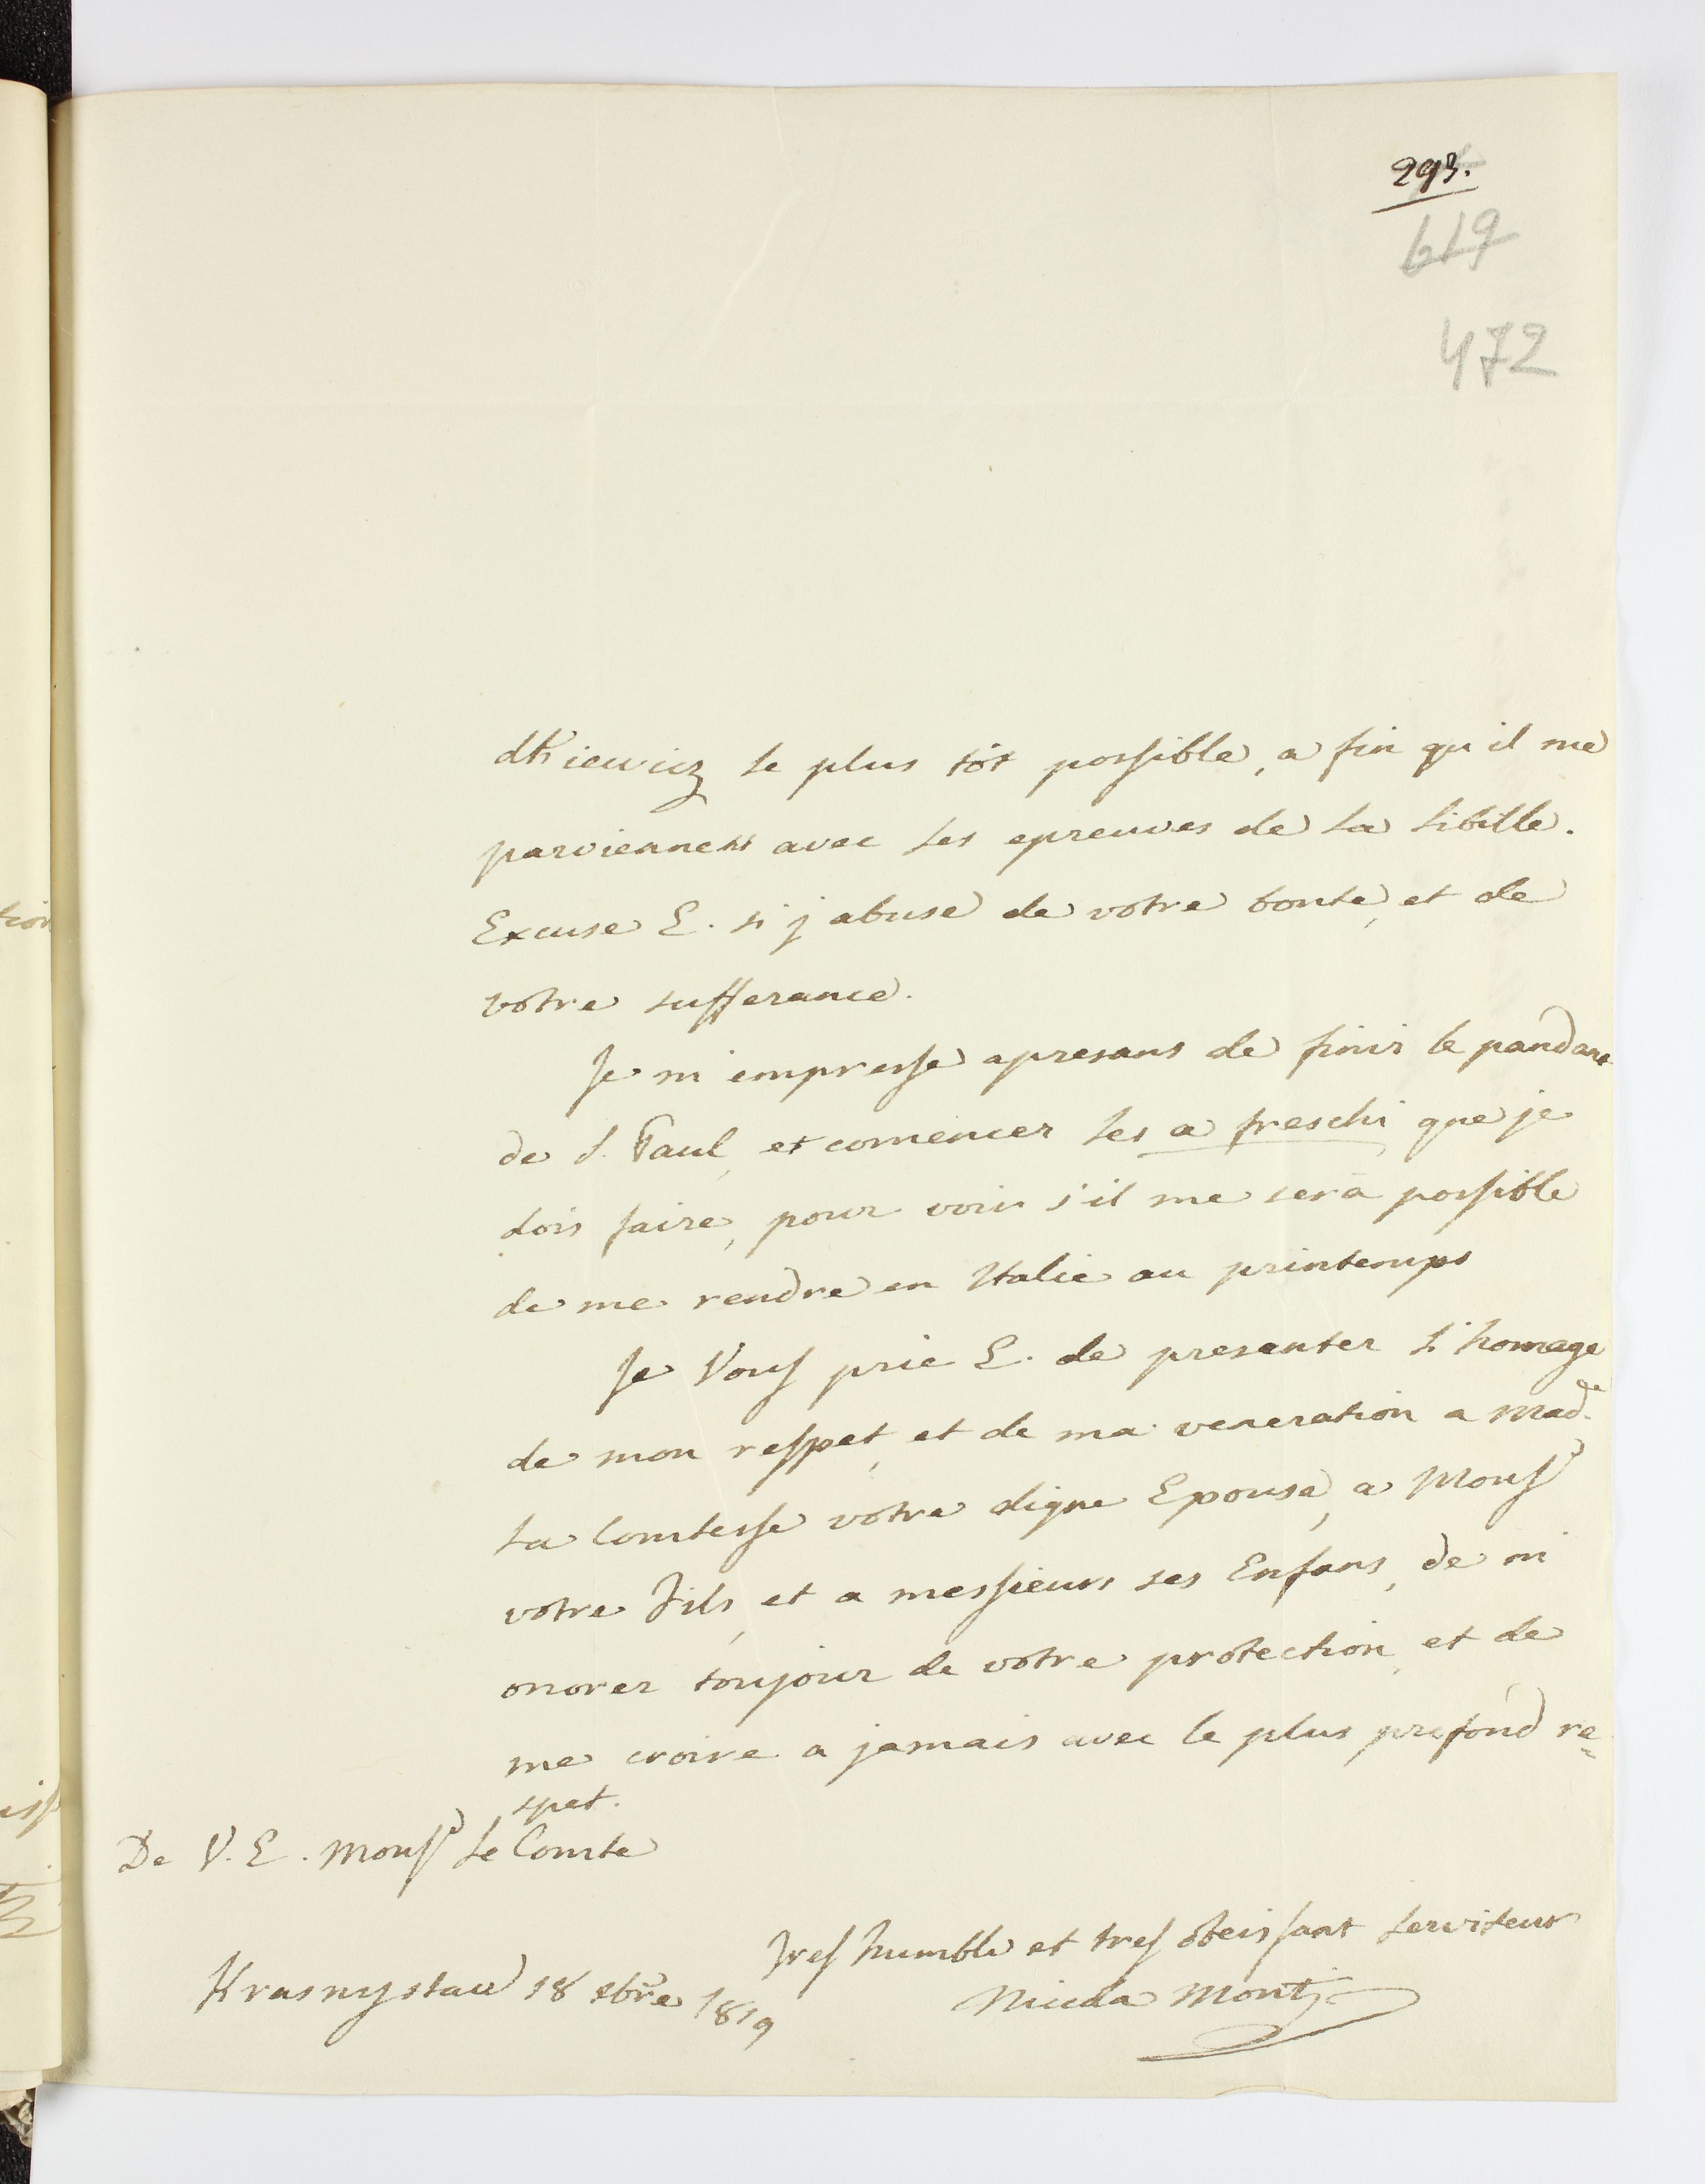 293.
619
472
dkiewicz le plus tôt possible, a fin qu il me
parviennent avec les epreuves de la Sibille.
Excuse E. si j abuse de votre bonte, et de
votre sufferance.
Je m empresse apresans de finir le pandant
de S. Paul, et comencer les a freschi que je
dois faire, pour voir s'il me serà possible
de me rendre en Italie au printemps
Je Vous prie E. de presanter l'homage
de mon respet, et de ma veneration a Mad.e
la Comtesse votre digne Epouse, a Monsr
votre Fils, et a messieurs ses Enfans, de m
onorer toujour de votre protection, et de
me croire a jamais avec le plus profond re=
spet.
De V. E. Monsr Le Comte
Tres humble et tres obeissant serviteur
Krasnystaw 18 bre 1819
Monti
tion